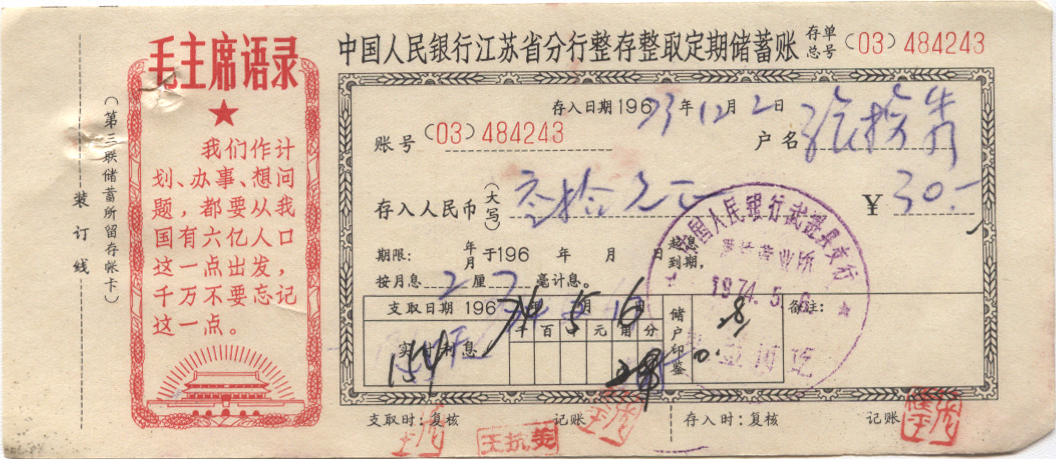 装订线
（第三联储蓄所留存帐卡）
毛主席语录
我们作计
划、办事、想问
题，都要从我
国有六亿人口
这一点出发，
千万不要忘记
这一点。
中国人民银行江苏省分行整存整取定期储蓄账 存单总号 (03) 484243
存入日期196 73年12月2日
账号 (03) 484243 户名
存入人民币（大写）叁拾元正 ¥30.-
期限： 年月于196 年 月 日起息到期，
按月息2厘7毫计息。
中国人民银行武进县支行
营业所
1974.5.6
支取日期196 74年5月6日
千百十元角分
实付利息
154天
储户印鉴
备注：
支取时：复核 记账 存入时：复核 记账
王抗美